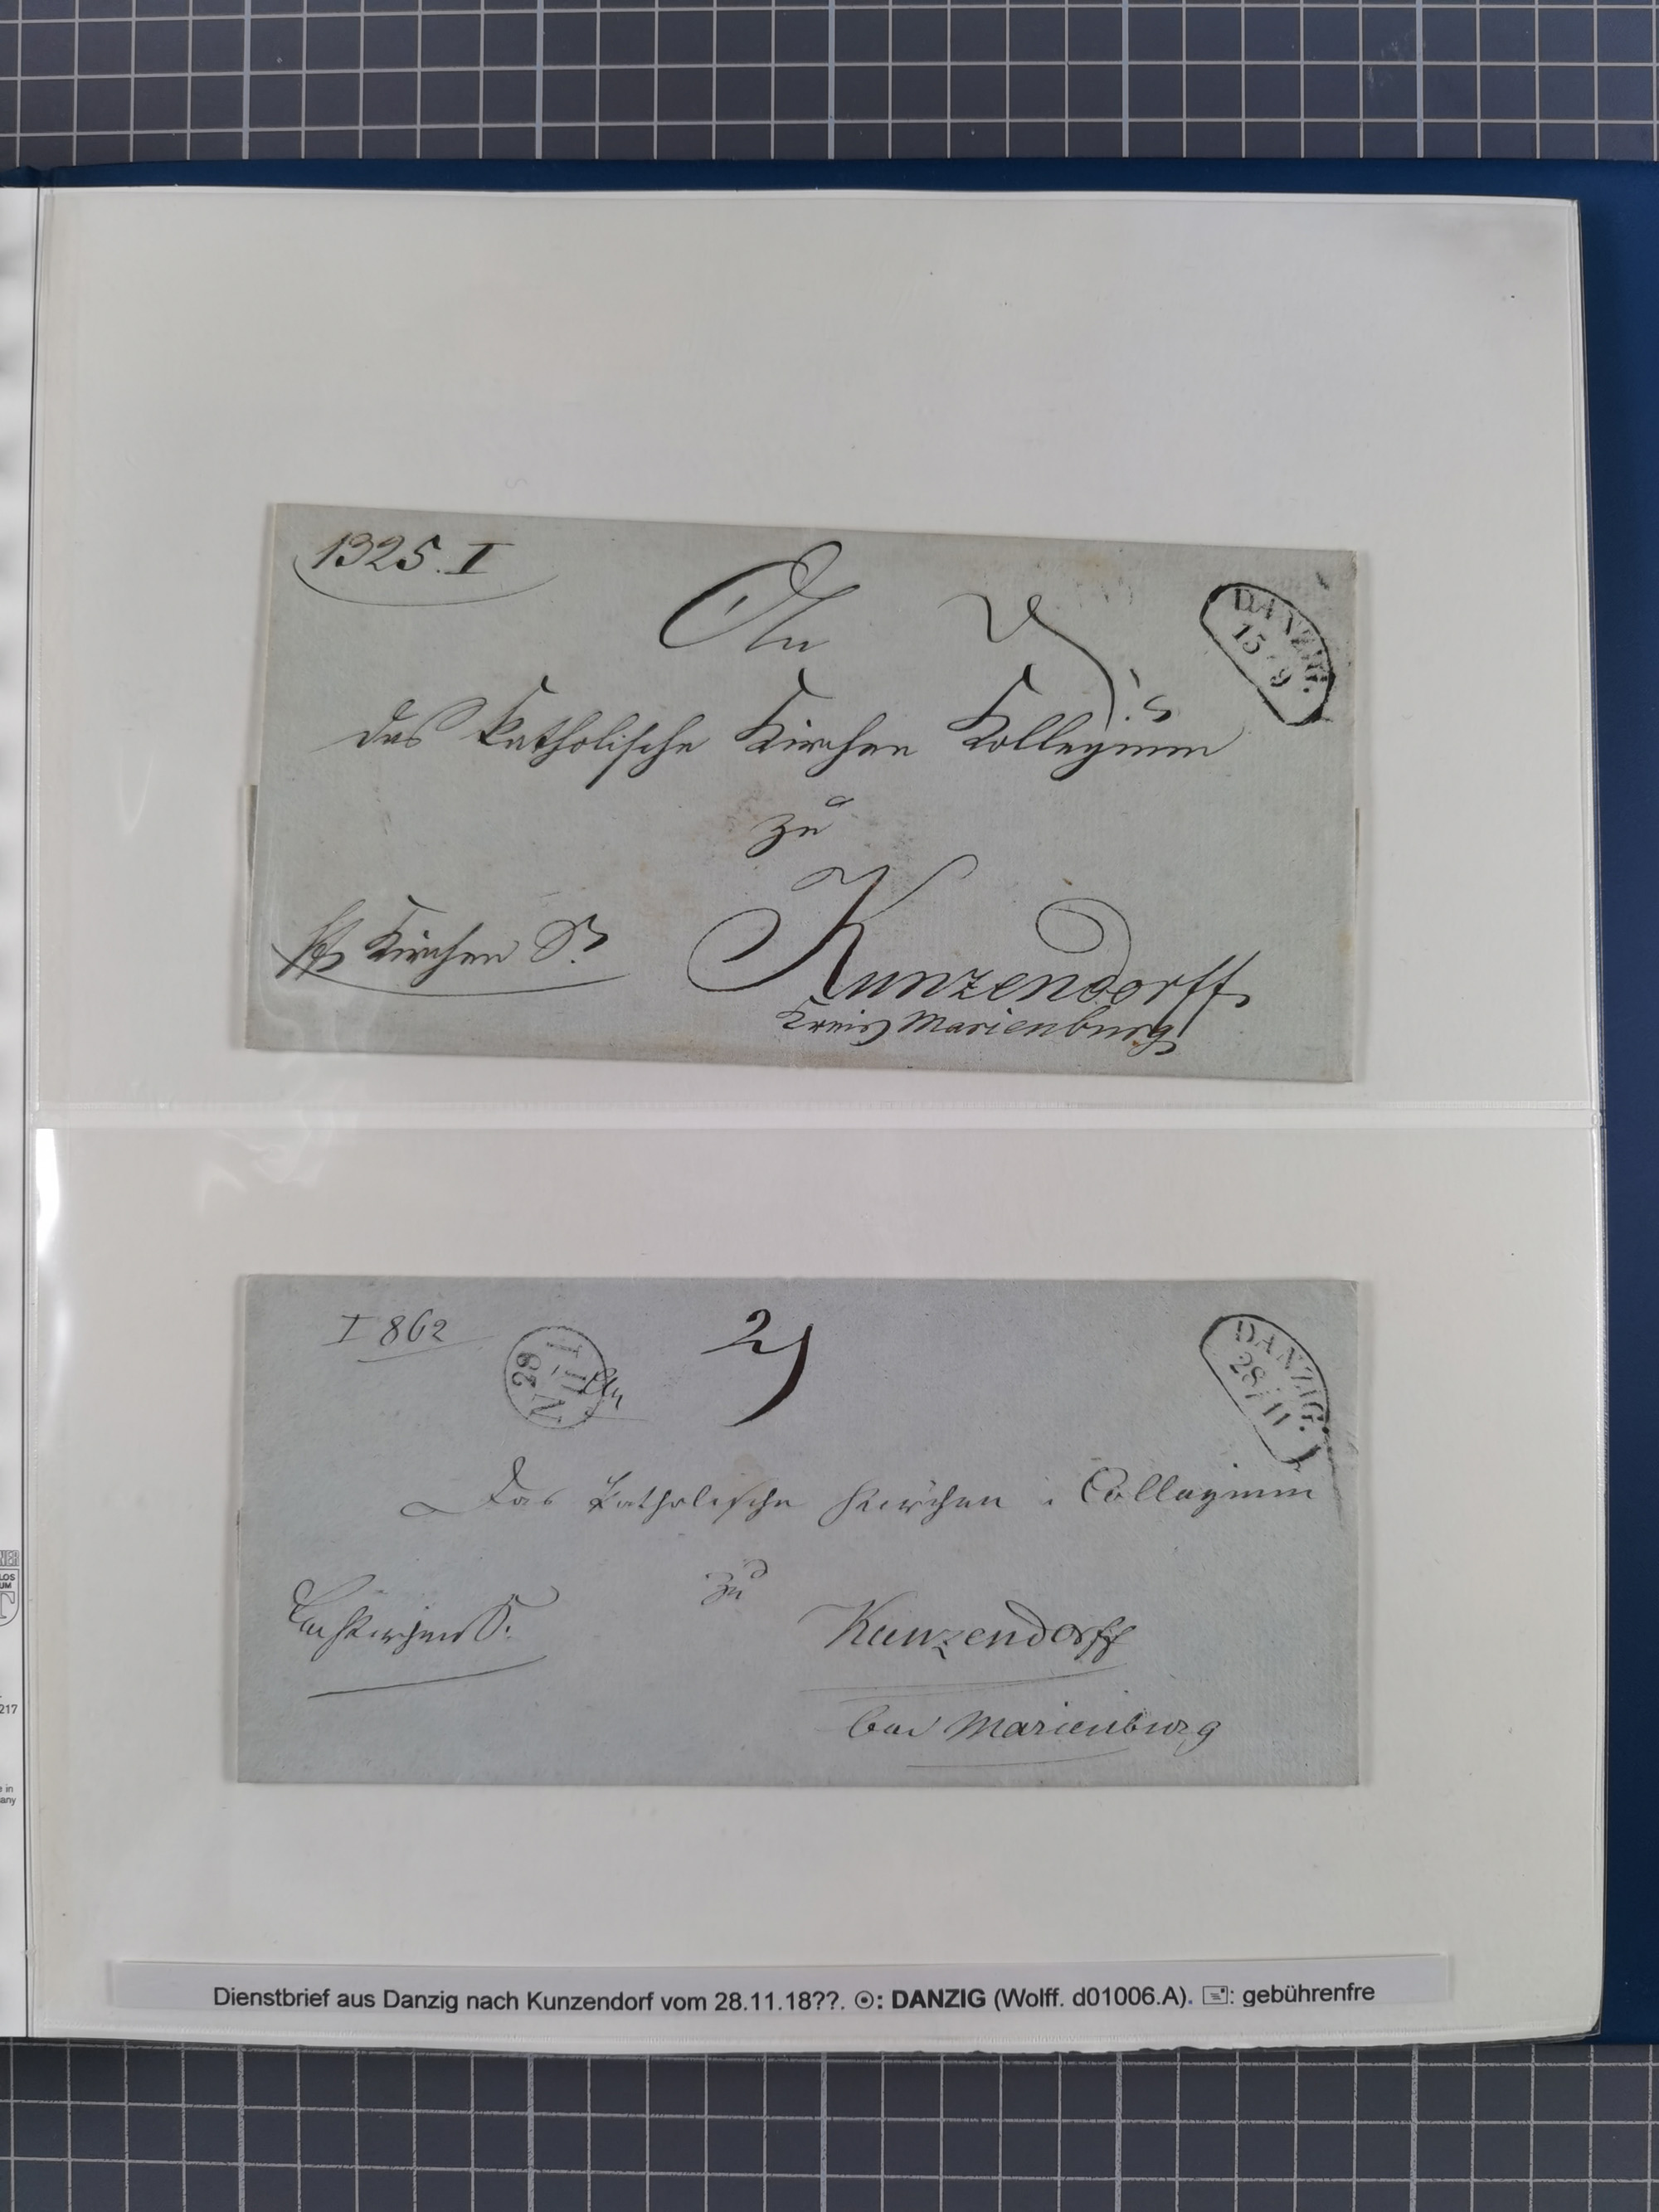 1325. I
An
DANZIG.
15 9
das katholische Kirchen Kollegium
zu
Kirchen S.
Kunzendorff,
Kreis Marienburg
I 862
28
N
An
2
DANZIG.
28 / 11
Das katholische Kirchen Collegium
zu
Kunzendorff
bei Marienburg
217
Dienstbrief aus Danzig nach Kunzendorf vom 28.11.18??. ⊙: DANZIG (Wolff. d01006.A). 🖃: gebührenfre